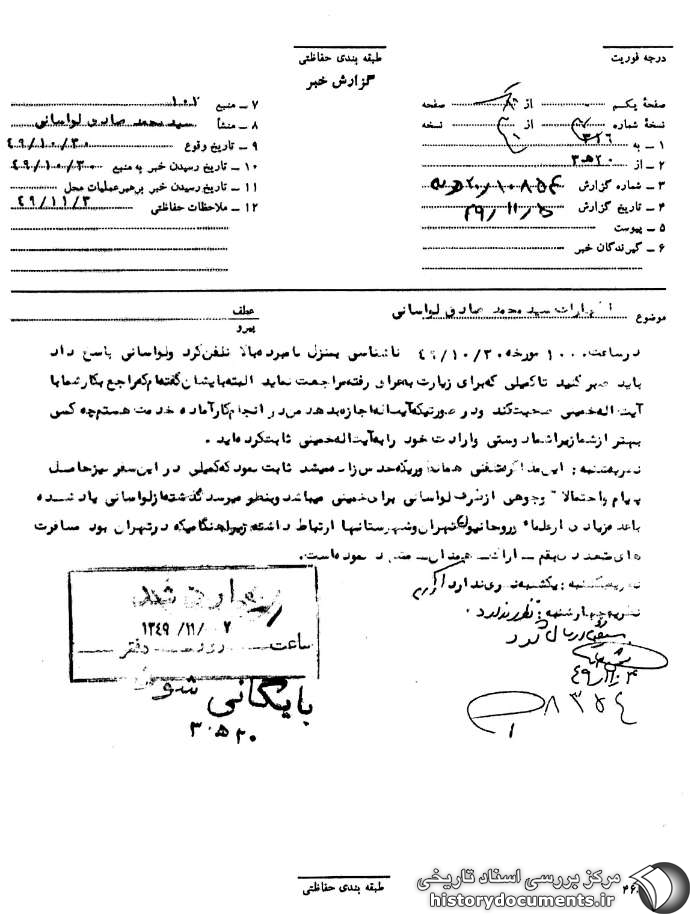 درجه فوریت
طبقه بندی حفاظتی
گزارش خبر
صفحهٔ یکم از صفحه
نسخهٔ شماره از نسخه
۱ ــ به ۳۱۶
۲ ــ از ۲۰ه۳
۳ ــ شماره گزارش
۴ ــ تاریخ گزارش
۵ ــ پیوست
۶ ــ گیرندگان خبر
۷ ــ منبع
۸ ــ منشأ سید محمد صادق لواسانی
۹ ــ تاریخ وقوع ۴۹/۱۰/۳۰
۱۰ ــ تاریخ رسیدن خبر به منبع ۴۹/۱۰/۳۰
۱۱ ــ تاریخ رسیدن خبر برهبرعملیات محل
۱۲ ــ ملاحظات حفاظتی ۴۹/۱۱/۳
موضوع اظهارات سید محمد صادق لواسانی
عطف
پیرو
در ساعت ۱۰۰۰ مورخه ۴۹/۱۰/۳۰ ناشناسی بمنزل نامبرده بالا تلفن کرد ولواسانی پاسخ داد
باید صبر کنید تا کمیلی که برای زیارت به عراق رفته مراجعت نماید البته بایشان گفته ام که راجع بکار شما با
آیت اله خمینی صحبت کند ودر صورتیکه آیت اله اجازه بدهد من در انجام کار آماده خدمت هستم چه کسی
بهتر از شما زیرا شما دوستی وارادت خود را به آیت اله خمینی ثابت کرده اید .
نظریه شنبه : این مذاکره تلفنی همانطوریکه حدس زاده میشد ثابت نمود که کمیلی در این سفر نیز حاصل
پیام واحتمالا وجوهی از طرف لواسانی برای خمینی میباشد وبنظر میرسد گذشته از لواسانی یاد شده
با عده زیادی از علماء و روحانیون تهران وشهرستانها ارتباط داشته زیرا هنگامیکه در تهران بود مسافرت
های متعدد بقم ــ اراک ــ همدان ــ نموده است .
نظریه یکشنبه : یکشنبه نظری ندارد
نظریه چهارشنبه : نظری ندارد .
۱۳۴۹/۱۱/۰۲
ساعت روز دفتر
بایگانی شود
۲۰ه۳
طبقه بندی حفاظتی
مرکز بررسی اسناد تاریخی
historydocuments.ir